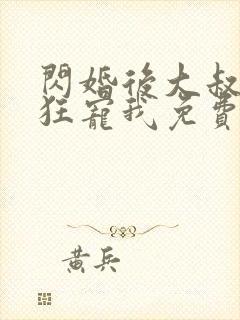 閃婚後大叔
狂寵我免費
黃兵